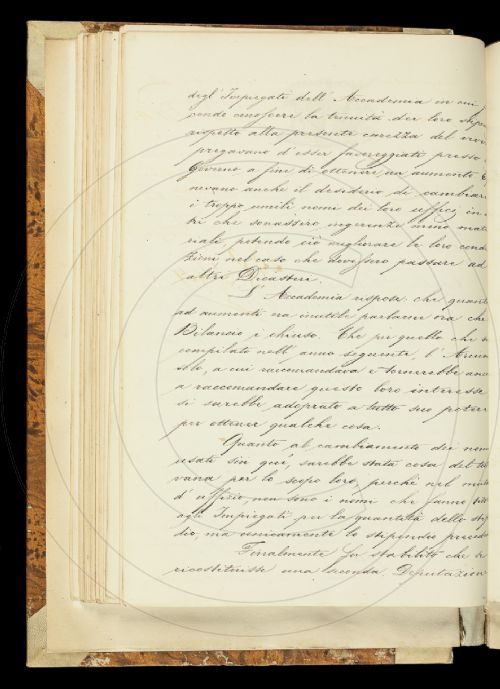 degl' Impiegati dell' Accademia in cui
conoscere la tenuità dei loro stip
rispetto alla presente carezza del viv
pregavano d'esser favoreggiati presso
Governo a fine di ottenere un aumento E
nevano anche il desiderio di cambiar
i troppo umili nomi dei loro uffizj in
tri che sonassero ingerenze meno mat
riali, potendo ciò migliorare le loro cond
zioni nel caso che dovessero passare ad
altri Dicasteri.
L' Accademia rispose che quant
ad aumenti era inutile parlarne ora che
Bilancio è chiuso. Che per quello che
compilato nell' anno seguente, l'
a cui raccomandava e tornerebbe anc
a raccomandare questo loro interesse
si sarebbe adoprato a tutto suo potere
per ottener qualche cosa.
Quanto al cambiamento dei nom
usati sin qui, sarebbe stata cosa del tut
vana per lo scopo loro, perchè nel
d' uffizio non sono i nomi che fanno
agli Impiegati per la quantità dello stip
dio, ma unicamente lo stipendio
Finalmente fu stabilito che
ricostituisse una seconda Deputazion